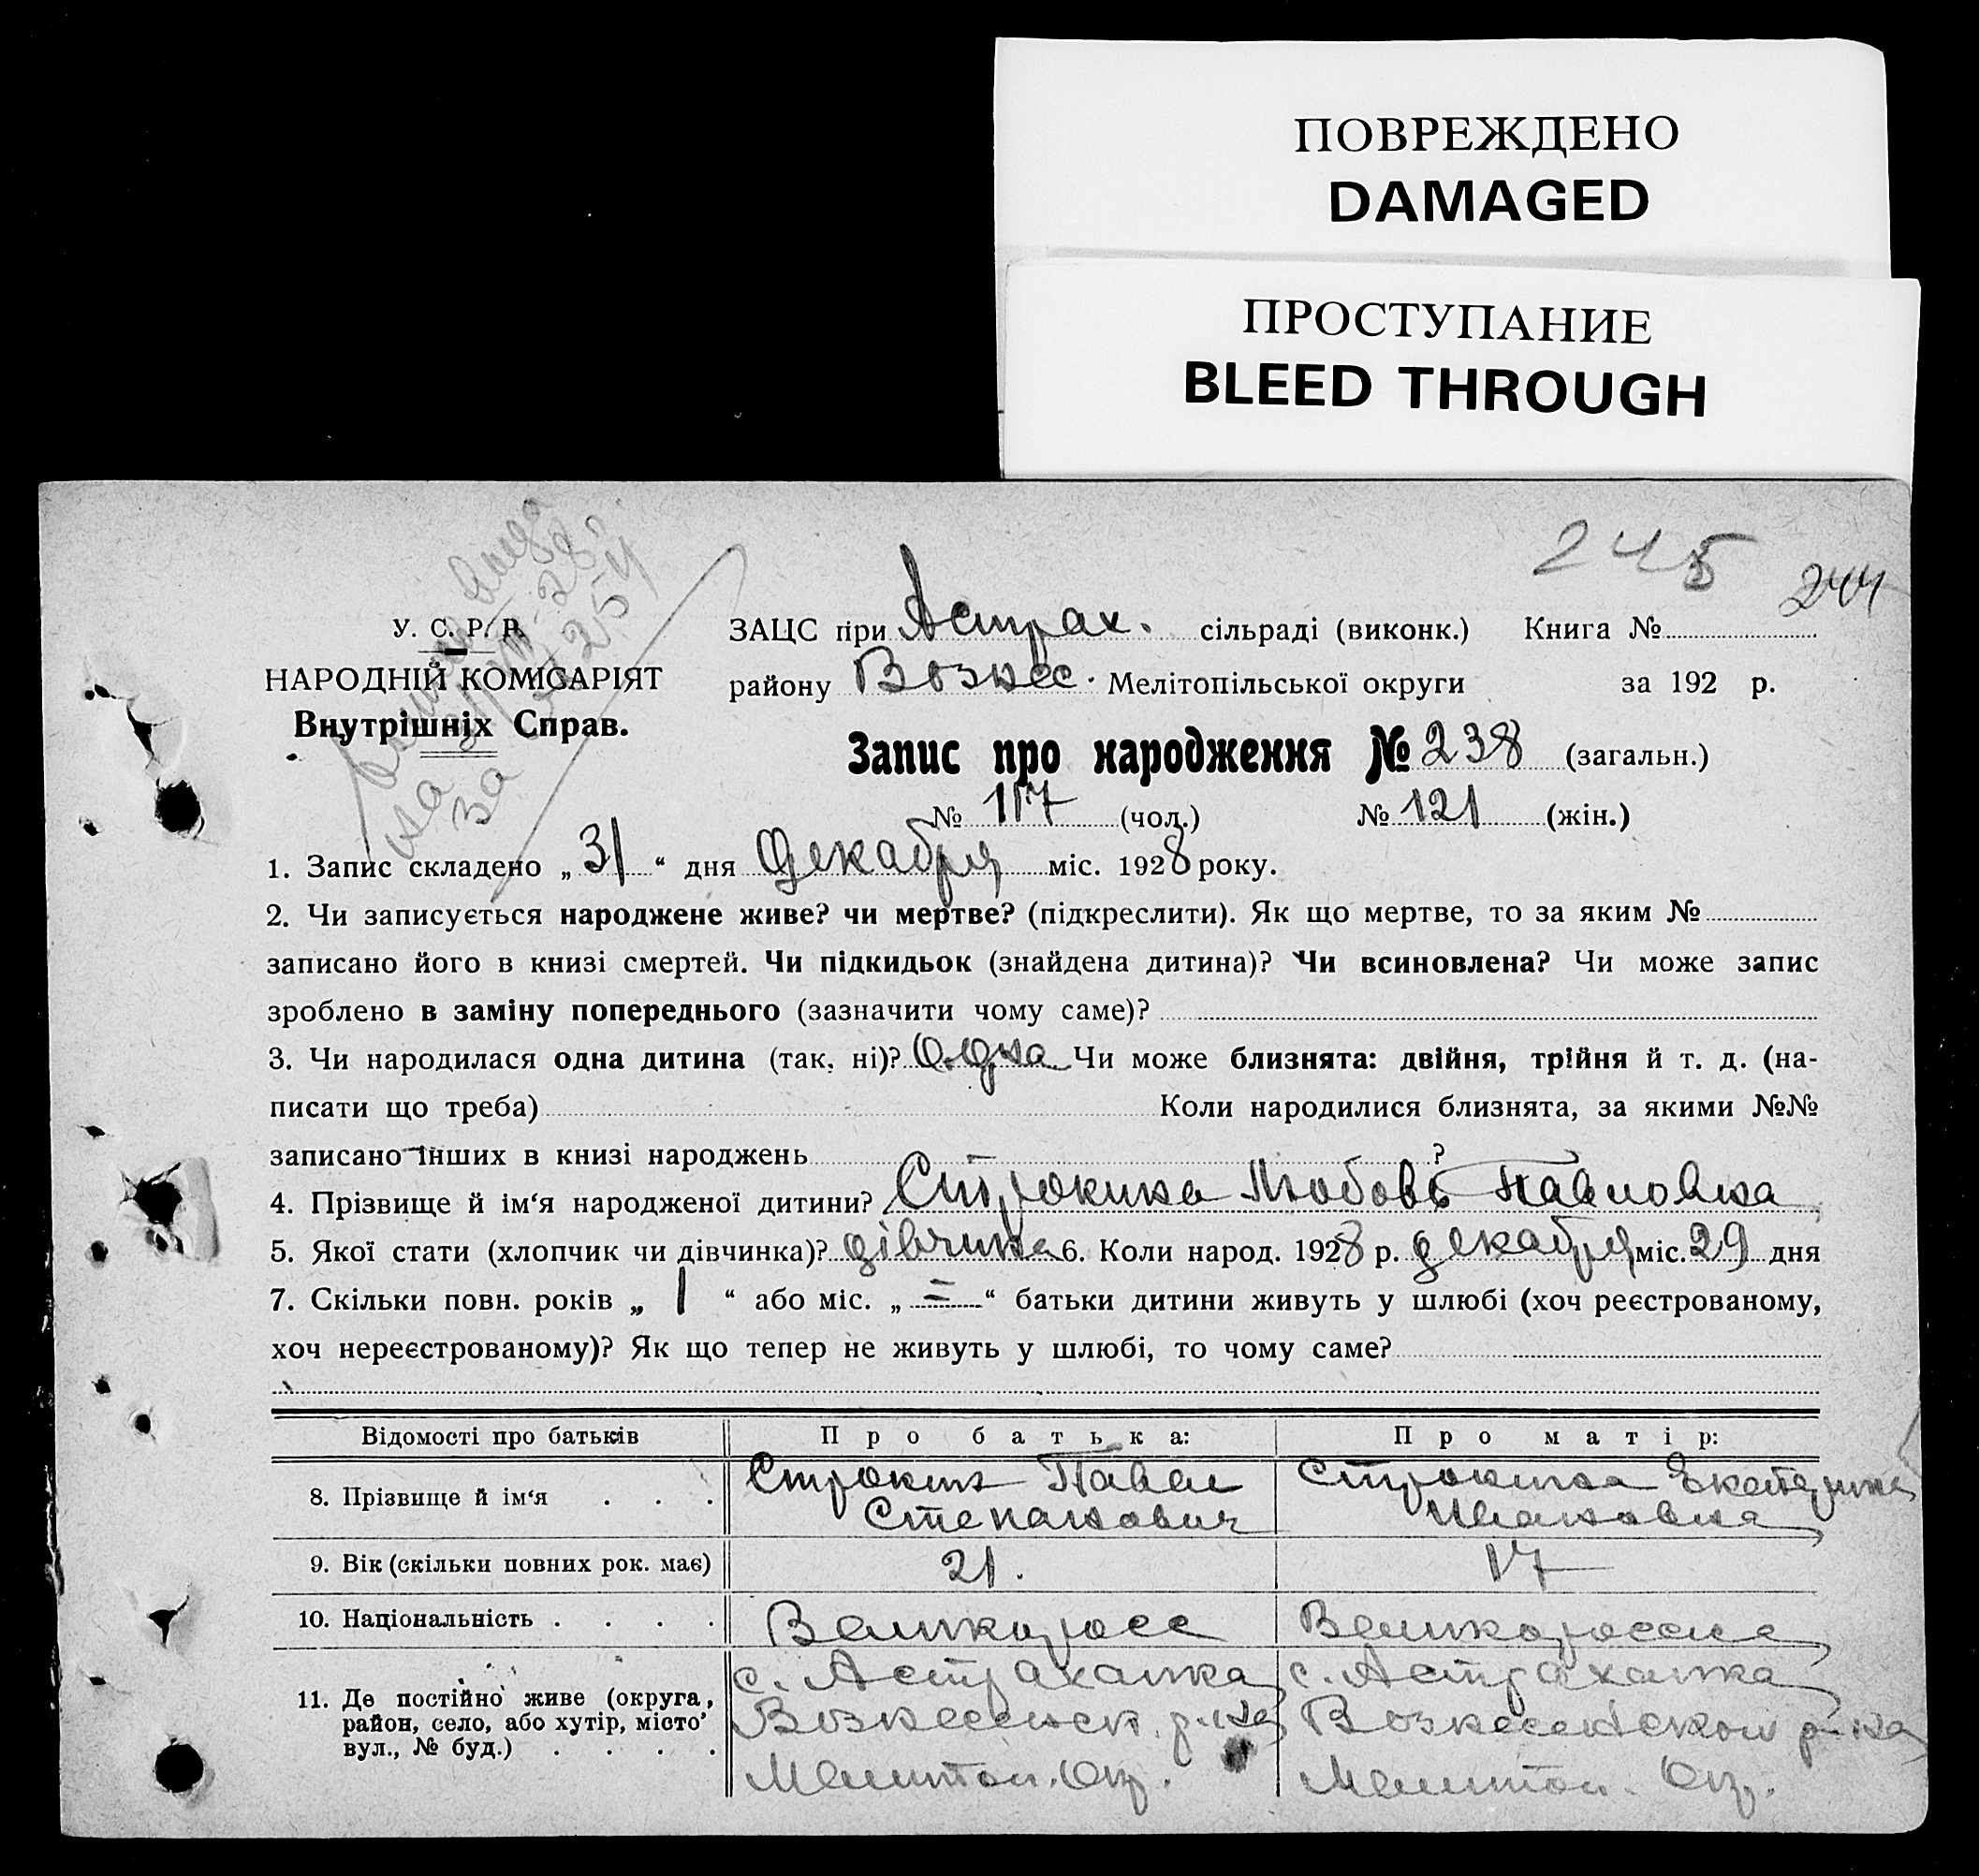 ПОВРЕЖДЕНО
DAMAGED
ПРОСТУПАНИЕ
BLEED THROUGH
245
244
У. С. Р. Р.
НАРОДНІЙ КОМІСАРІЯТ
Внутрішніх Справ.
ЗАЦС при Астрах. сільраді (виконк.) Книга №
району Вознес. Мелітопільської округи за 192 р.
Запис про народження № 238 (загальн.)
№ 117 (чол.) № 121 (жін.)
1. Запис складено „ 31 “ дня Декабря міс. 1928 року.
2. Чи записується народжене живе? чи мертве? (підкреслити). Як що мертве, то за яким №
записано його в книзі смертей. Чи підкидьок (знайдена дитина)? Чи всиновлена? Чи може запис
зроблено в заміну попереднього (зазначити чому саме)?
3. Чи народилася одна дитина (так, ні)? Одна Чи може близнята: двійня, трійня й т. д. (на-
писати що треба) Коли народилися близнята, за якими №№
записано інших в книзі народжень ?
4. Прізвище й ім‘я народженої дитини? Строкина Любовь Павловна
5. Якої стати (хлопчик чи дівчинка)? дівчина 6. Коли народ. 1928 р. декабря міс. 29 дня
7. Скільки повн. років „ 1 “ або міс. „ = “ батьки дитини живуть у шлюбі (хоч реєстрованому,
хоч нереєстрованому)? Як що тепер не живуть у шлюбі, то чому саме?
Відомості про батьків Про батька: Про матір:
8. Прізвище й ім‘я . . . Строкин Павел Строкина Екатерина
Степанович Ивановна
9. Вік (скільки повних рок. має) 21. 17
10. Національність . . . . Великоросс Великоросска
11. Де постійно живе (округа, с. Астраханка с. Астраханка
район, село, або хутір, місто Вознесенск. р-на Вознесенском р-на
вул., № буд.) . . . . Мелитоп. Окр. Мелитоп. Окр.